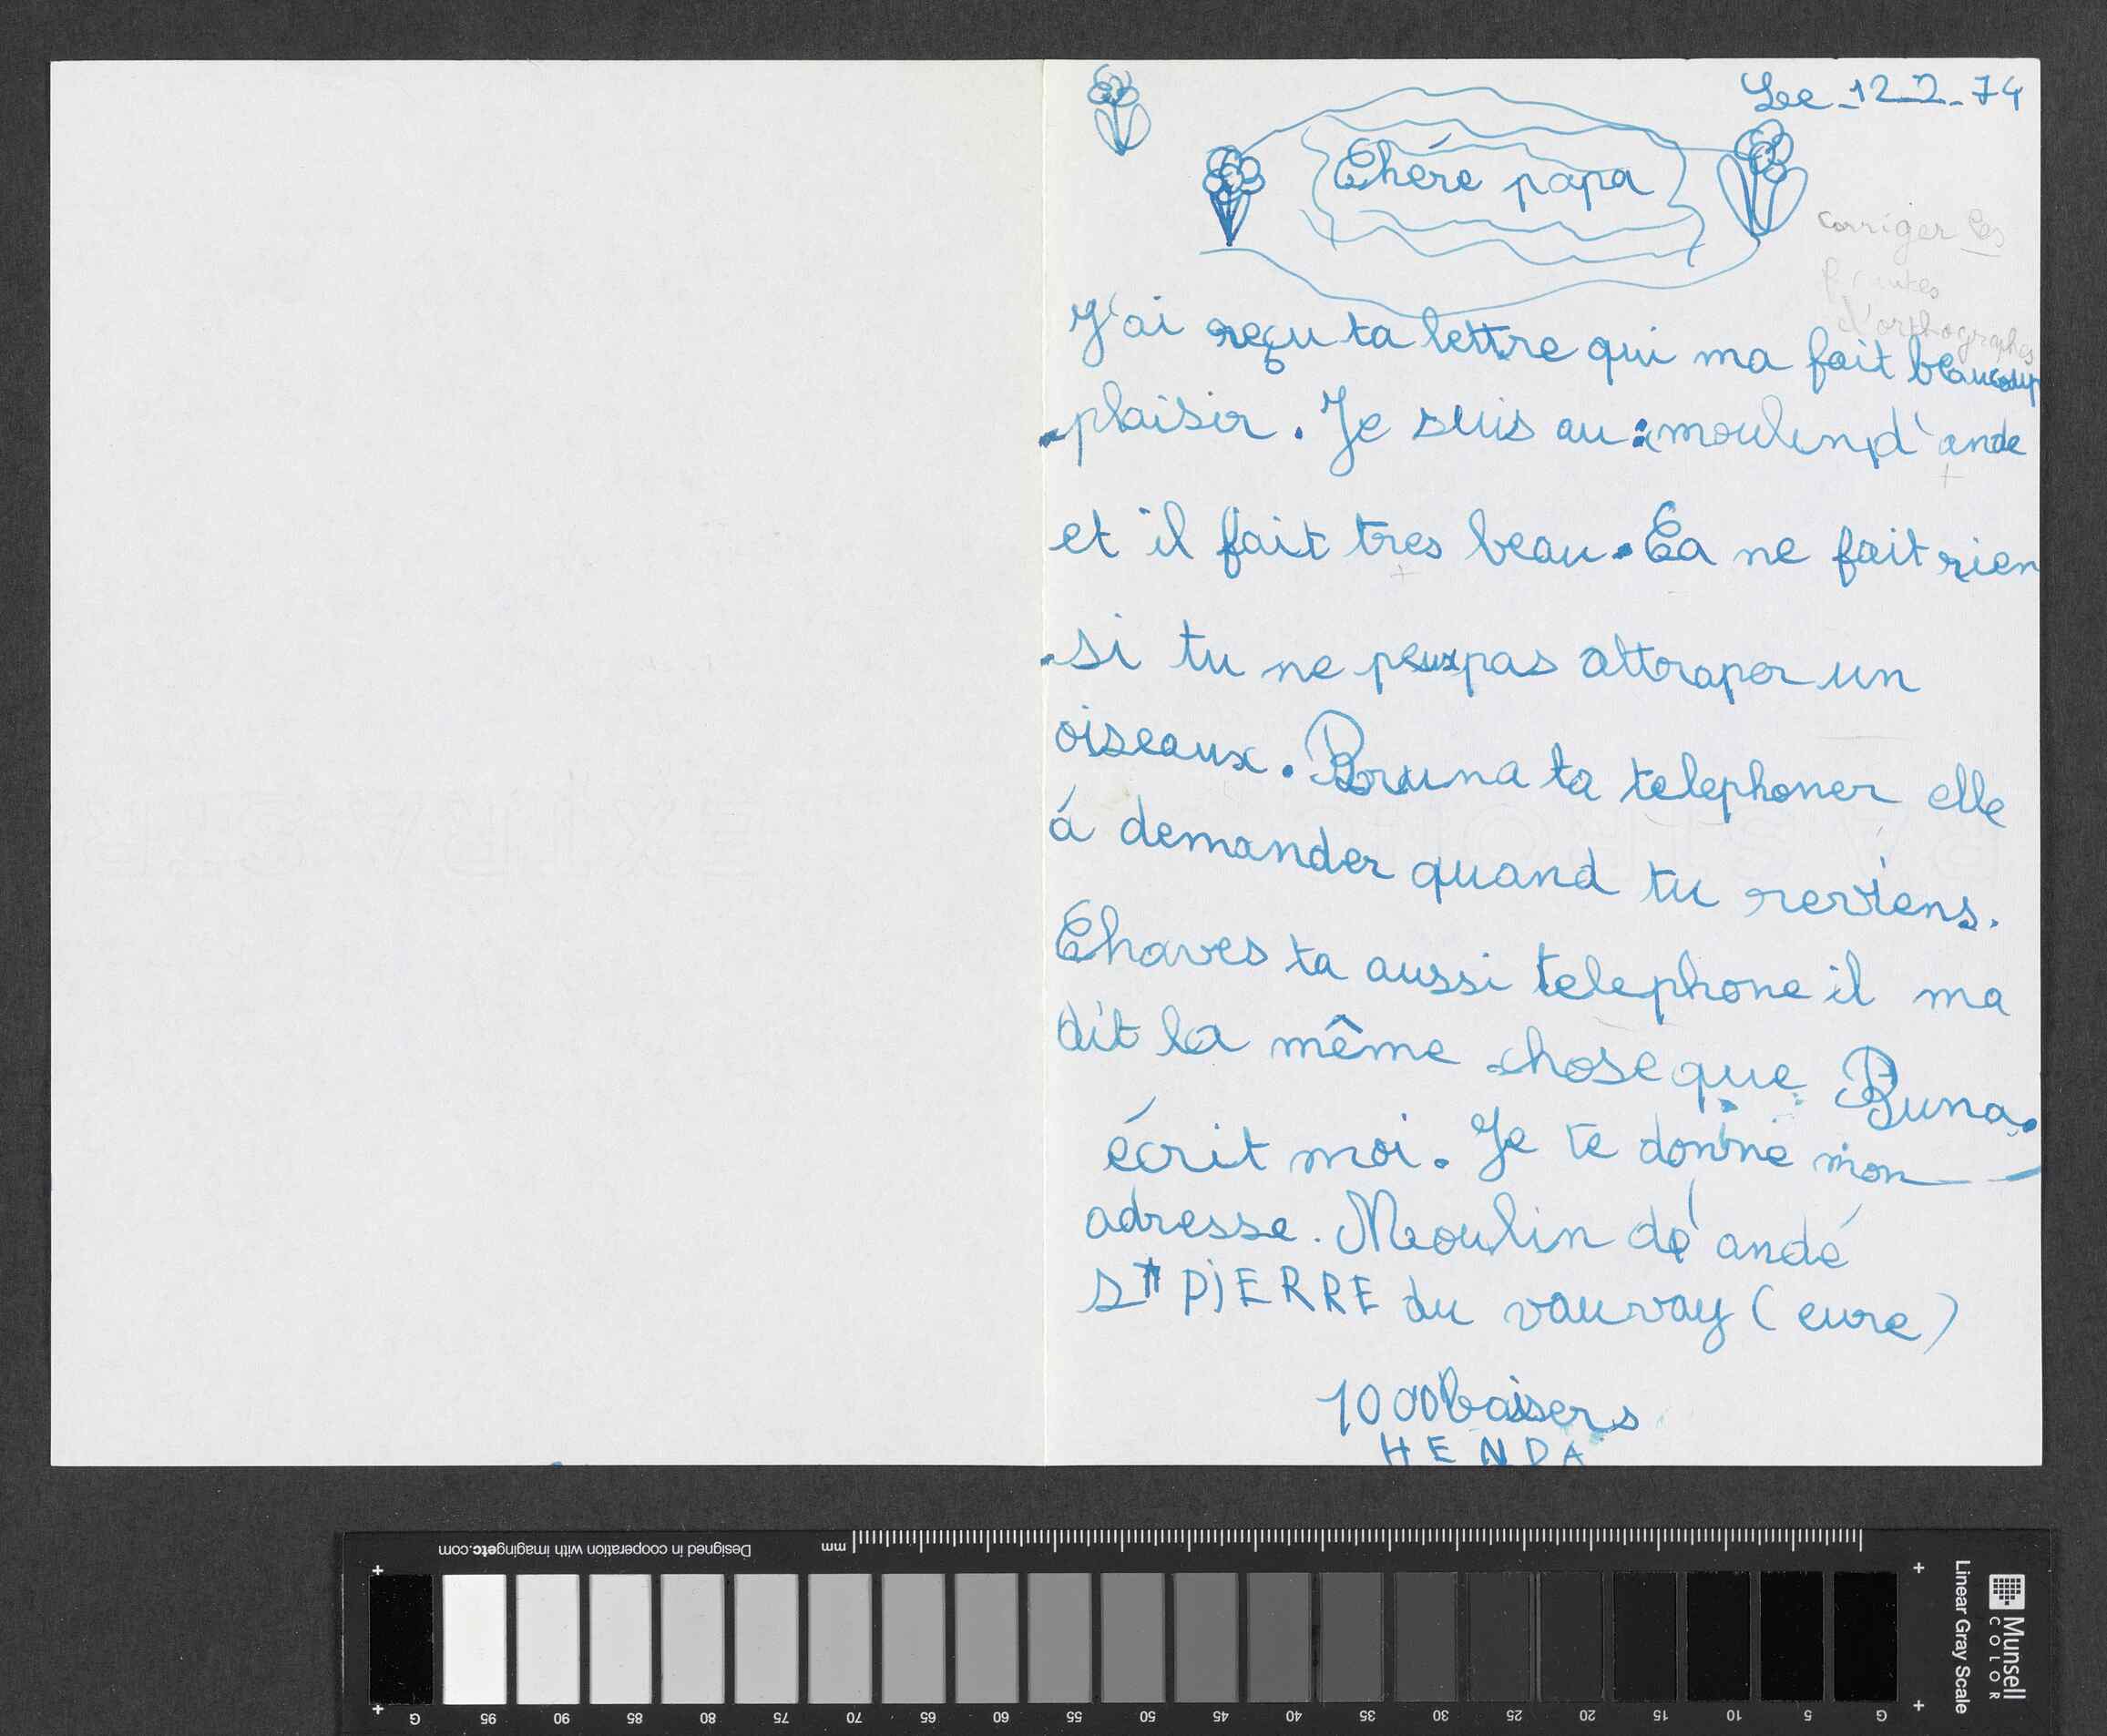 Lee 12-2-74
Chére papa
corriger les
fautes
d'orthographes
J'ai reçu ta lettre qui ma fait beaucoup
plaisir. Je suis au moulin d'ande
et il fait tres beau. Ca ne fait rien
si tu ne peux pas attraper un
oiseaux. Bruna ta telephoner elle
á demander quand tu reviens.
Chaves ta aussi telephone il ma
dit la même chose que Buna.
écrit moi. Je te donne mon
adresse. Moulin dé andé
St PiERRE du vauvay (eure)
1000 baisers
HENDA
Designed in cooperation with imagingetc.com
mm
G 95 90 85 80 75 70 65 60 55 50 45 40 35 30 25 20 15 10 5 G
Linear Gray Scale
Munsell
COLOR